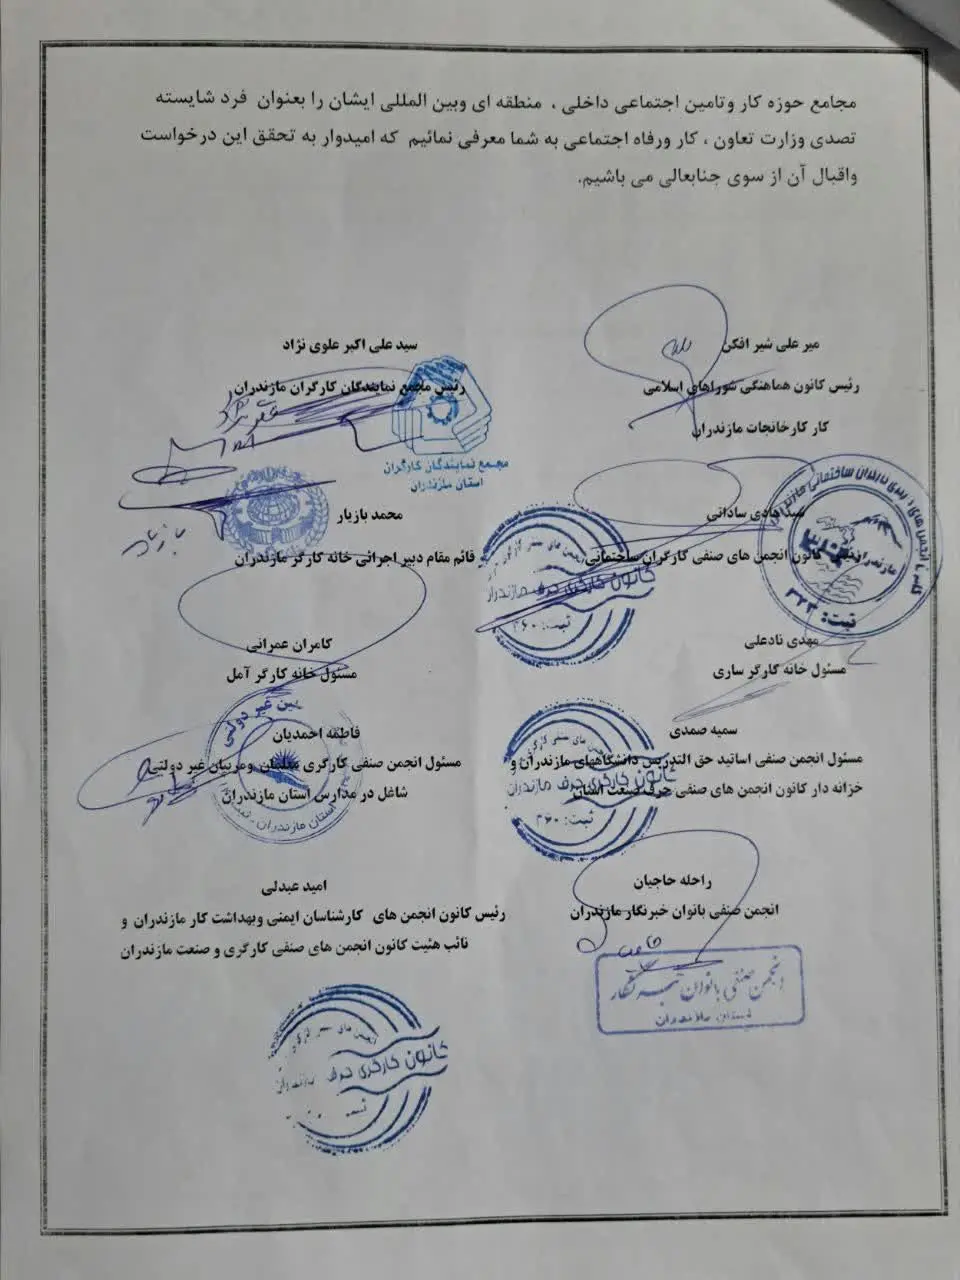 مجامع حوزه کار وتامین اجتماعی داخلی ، منطقه ای وبین المللی ایشان را بعنوان فرد شایسته
تصدی وزارت تعاون ، کار ورفاه اجتماعی به شما معرفی نمائیم که امیدوار به تحقق این درخواست
واقبال آن از سوی جنابعالی می باشیم.
میر علی شیر افکن
رئیس کانون هماهنگی شوراهای اسلامی
کار کارخانجات مازندران
سید علی اکبر علوی نژاد
رئیس مجمع نمایندگان کارگران مازندران
مجمع نمایندگان کارگران
استان مازندران
سید هادی ساداتی
رئیس کانون انجمن های صنفی کارگران ساختمانی
مازندران
ثبت: ۳۲۳
محمد بازیار
قائم مقام دبیر اجرائی خانه کارگر مازندران
انجمن های صنفی کارگری
کانون کارگری حرف مازندران
ثبت: ۳۶۰
مهدی نادعلی
مسئول خانه کارگر ساری
کامران عمرانی
مسئول خانه کارگر آمل
سمیه صمدی
مسئول انجمن صنفی اساتید حق التدریس دانشگاههای مازندران و
خزانه دار کانون انجمن های صنفی حرف صنعت استان
کانون کارگری حرف مازندران
ثبت: ۳۶۰
فاطمه احمدیان
مسئول انجمن صنفی کارگری معلمان ومربیان غیر دولتی
شاغل در مدارس استان مازندران
غیر دولتی
استان مازندران
راحله حاجیان
انجمن صنفی بانوان خبرنگار مازندران
انجمن صنفی بانوان خبرنگار
استان مازندران
امید عبدلی
رئیس کانون انجمن های کارشناسان ایمنی وبهداشت کار مازندران و
نائب هئیت کانون انجمن های صنفی کارگری و صنعت مازندران
انجمن های صنفی کارگری
کانون کارگری حرف مازندران